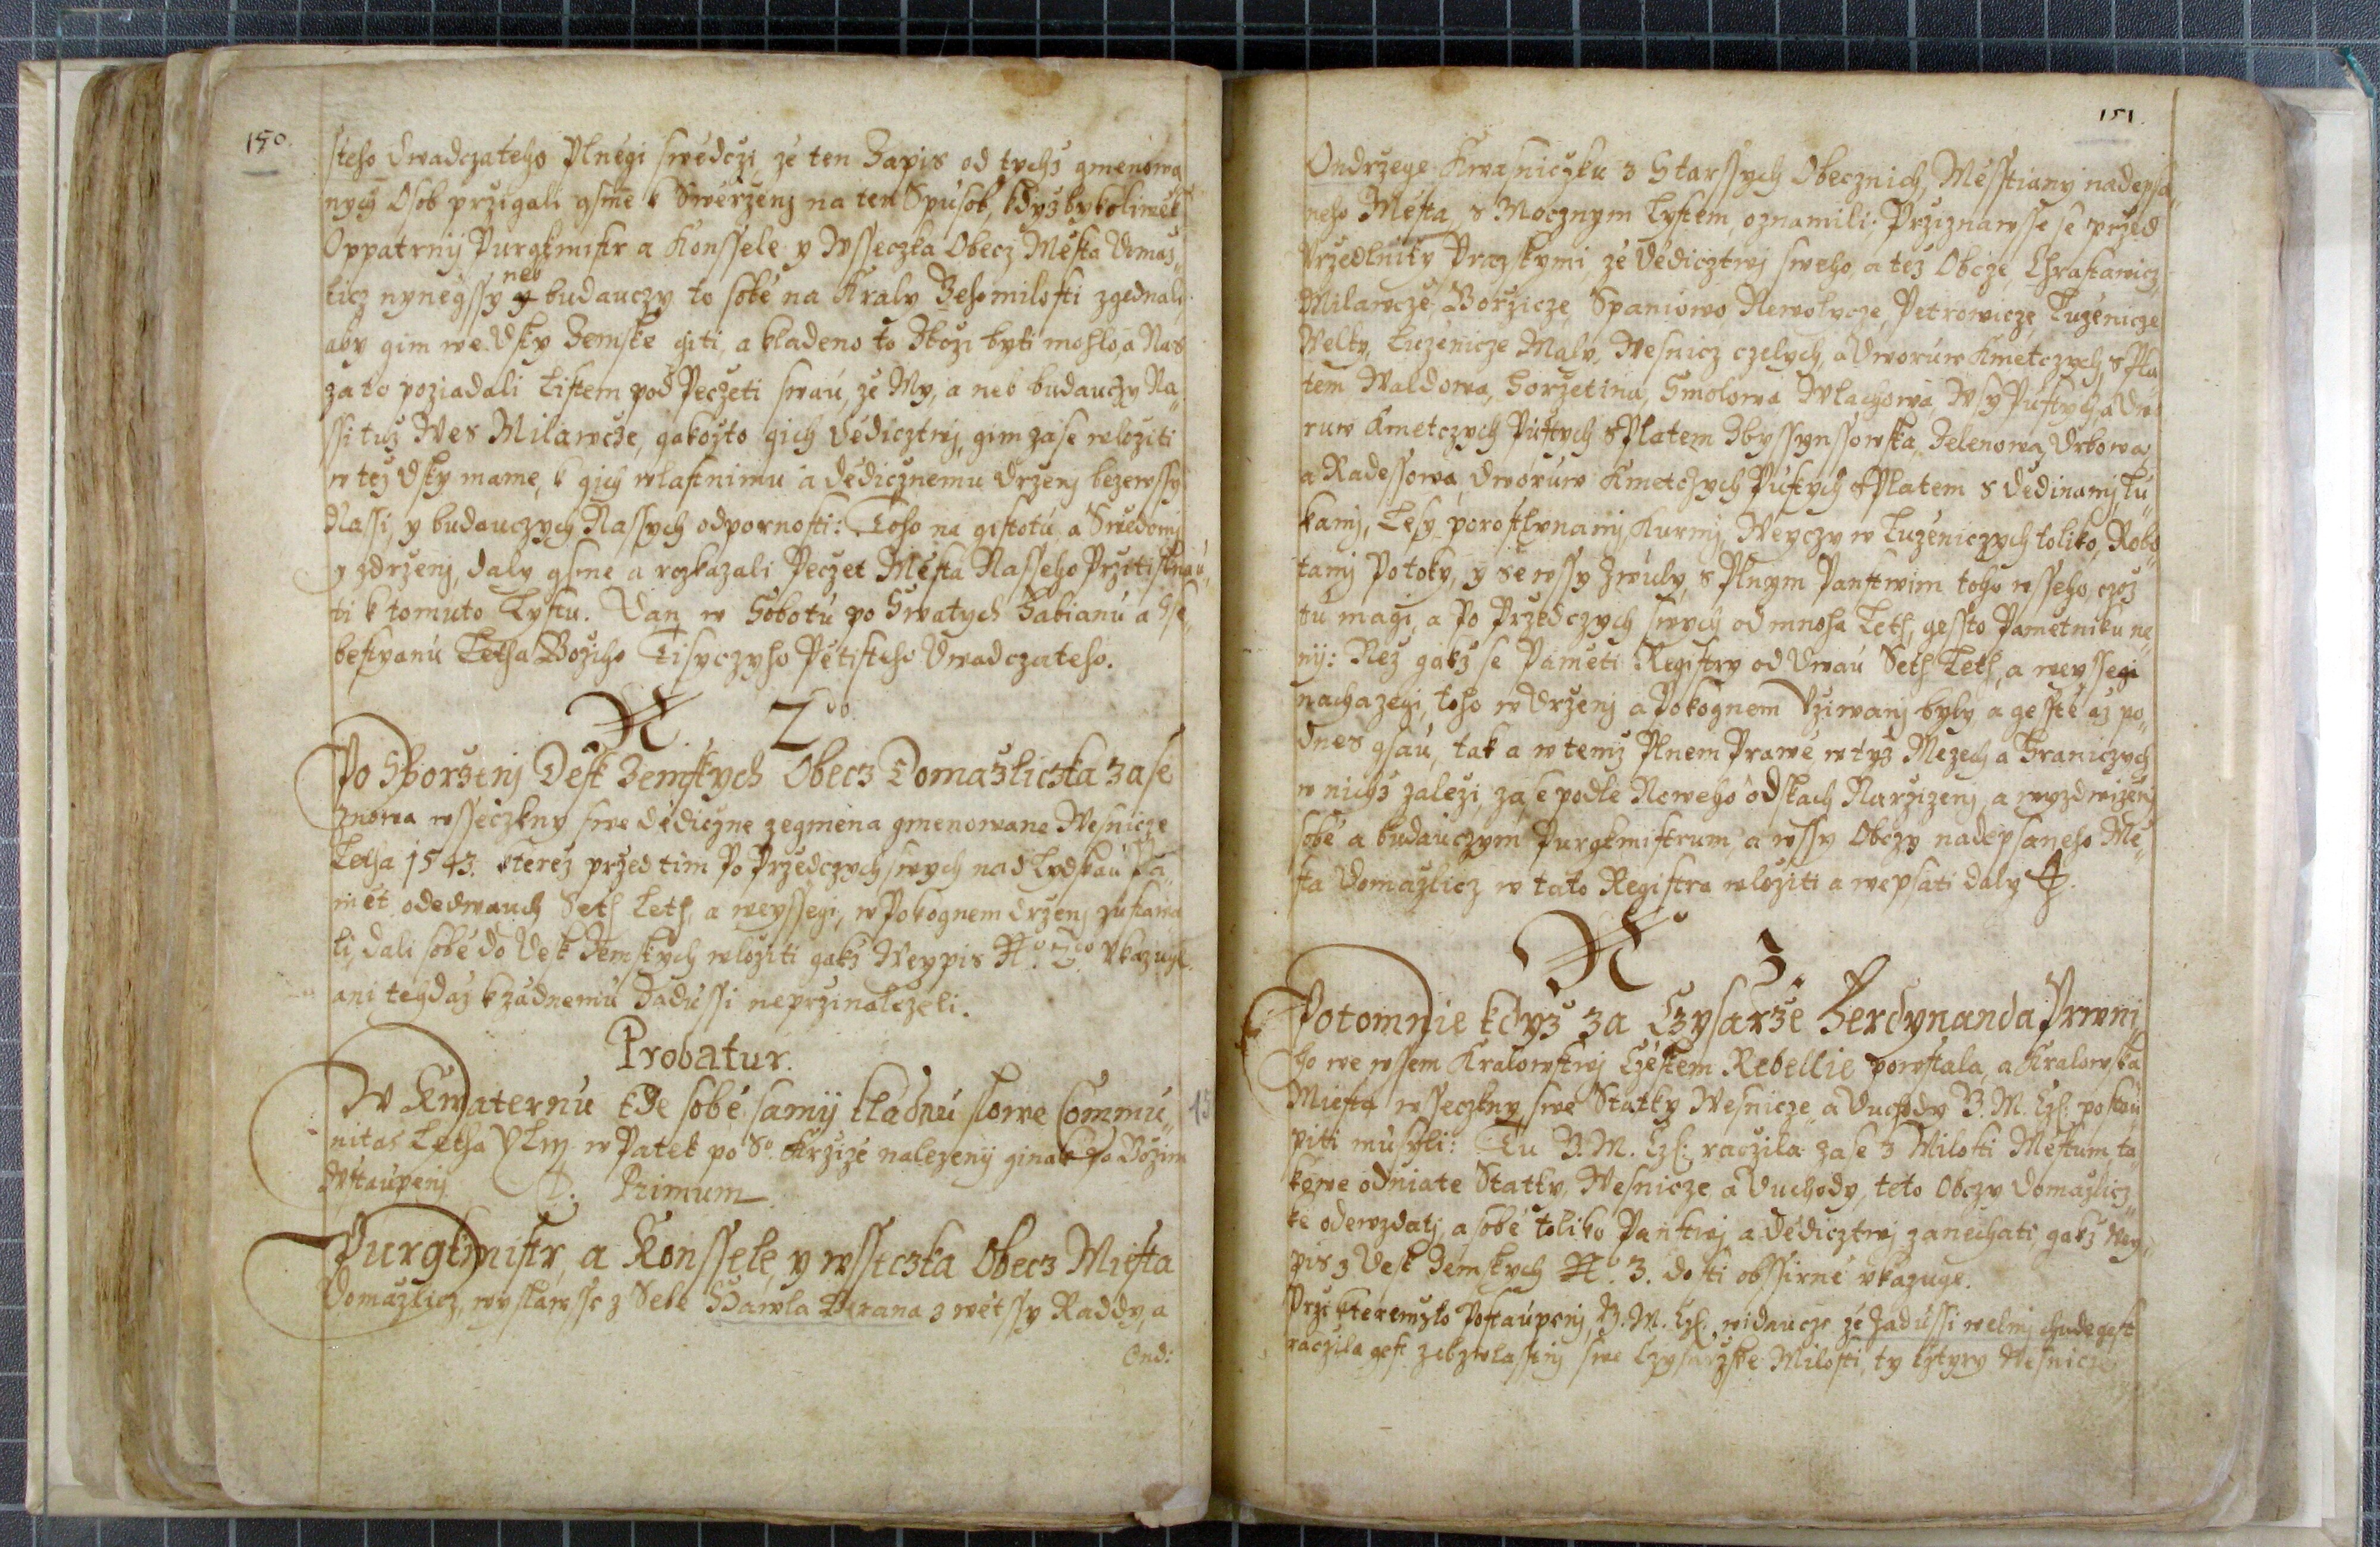 150.
steho dwadczateho Plnegi swedczi ze ten Zapis od tychz gmenowa
nych Osob przigali gsme k Swerzenj na ten Spusob, kdyzbykoliwek
Oppatrnij Purgkmistr a Konssele y Wsseczka Obecz Mesta Domaz„
licz nynegssy neb budauczy to sobe na Kraly Geho milosti zgednali,
aby gim we Dsky Zemske giti, a kladeno to Zbozi byti mohlo, a Nas
za to poziadali Listem pod Peczeti swau, ze My, a neb budauczy Na„
ssi tuz Wes Milawcze, gakozto gich Dedicztwj, gim zase wloziti
w tez Dsky mame, k gich wlastnimu a dedicznemu drzenj bezewssy
Nassi, y budauczych Nassych odpornosti: Toho na gistotu a Swedomj
y zdrzenj, daly gsme a rozkazali Peczet Mesta Nasseho Przitisknau„
ti k tomuto Lystu. Dan w Sobotu po Swatych Fabianu a Sse„
bestyanu Letha Boziho Tisyczyho Petisteho Dwadczateho.
N. 2do
Po Shorzenj Desk Zemskych Obecz Domazliczka zase
znowa wsseczkny swe dediczne zegmena gmenowane Wesnicze
Letha 1543. kterez przed tim Po Przedczych swych nad Lydskau Pa„
met odedwauch Seth Leth, a weyssegi, w Pokognem drzenj zustawa
li, dali sobe do Desk Zemskych wloziti gakz Weypis No. 2do vkazuge.
ani tehdaz k zadnemu Zadussi neprzinalezeli.
Probatur.
W Kwaternu kde sobe samij kladnu slowe Commu„
nitas Letha XLIIJ. w Patek po So. Krzize nalezenij ginak po Bozim
Wstaupenj D. Primum
Purgkmistr, a Konssele, y wsseczka Obecz Miesta
Domazlicz, wyslawsse z Sebe Hawla Berana z wetssy Raddy, a
Ond:
151.
Ondrzege Kwasniczku z Starssych Obecznich, Messtiany nadepsa„
neho Mesta, s Mocznym Lystem, oznamili: Przziznawsse se przed
Vrzednity Prazskymi, ze Dedicztwj sweho, a tez Obcze, Chrastawicz,
Milawcze, Borzicze, Spaniowo Newolycze, Petrowicze, Luzenicze
Welky, Luzenicze Maly, Wesnicz czelych, a Dworuw Kmetczych, s Pla
tem Waldowa, Horzetina, Smolowa Wlachowa, Wsy Pustych, a Dwo
ruw Kmetczych Pustych s Platem Zbyssynssowska, Zelenowa Vrbowa
a Radessowa, Dworuw Kmetczych Pustych s Platem s Dedinamj, Lu„
kamj, Lesy porostlynamj Kurmj, Weyczy w Luzeniczych toliko, Robo„
tamj Potoky, y se wssy Zwuly, s Plnym Panstwim toho wsseho, czoz
tu magi, a Po Przedczych swych od mnoha Leth, gessto Pametniku ne„
nij: Nez gakz se Pameti Registry od Dwau Seth Leth, a weyssegi
nachazegi, toho w Drzenj a Pokognem Vziwanj byly, a gesste az po„
dnes gsau, tak a w temz Plnem Prawe, w tyz Mezech a Graniczych
w nichz zalezi, zase podle Noweho o dskach Narzizenj, a wyzdwizenj
sobe a budauczym Purgkmistrum, a wssy Obczy nadepsaneho Me„
sta Domazlicz w tato Registra wloziti a wepsati daly.
No 3.
Potomnie kdyz za Czysarze Ferdynanda Prwni„
ho we wssem Kralowstwj Czeskem Rebellie powstala, a Kralowska
Miesta wsseczkny swe Statky Wesnicze a Duchody G. M. Czs: postau
piti musyli: Tu G. M. Czs: raczila zase z Milosti Mestum ta„
kowe odniate Statky, Wesnicze, a Duchody, teto Obczy Domazlicz„
ke odewzdatj, a sobe toliko Panstwj a Dedicztwj zanechati, gakz Wey„
pis z Desk Zemskych No. 3. dosti obssirne vkazuge.
Przi kteremzto Postaupenj, G. M. Czs: widaucze ze Zadussi welmj chude gest
raczila gest zebzwlasstnj swe Czysarzske Milosti, ty cztyry Wesnicze